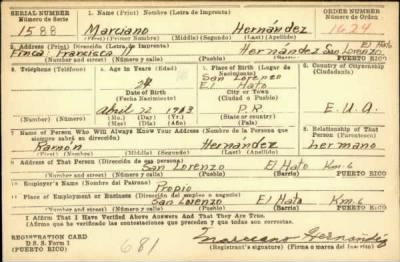 SERIAL NUMBER 1. Name (Print) Nombre (Letra de Imprenta) ORDER NUMBER
Número de Serie Número de Orden
1588 Marciano Hernández 1624
(First) (Primer Nombre) (Middle) (Segundo) (Last) (Apellido)
2. Address (Print) Dirección (Letra de Imprenta) El Hato
Finca: Francisca H Hernández San Lorenzo
(Number and street) (Número y calle) (Town) (Pueblo) (Barrio) PUERTO RICO
3. Telephone (Teléfono) 4. Age in Years (Edad) 5. Place of Birth (Lugar de Nacimiento) 6. Country of Citizenship (Ciudadanía)
29 San Lorenzo
Date of Birth El Hato
(Fecha Nacimiento) City or Town
(Ciudad o Pueblo)
April 22 1913 P.R. E.U.A.
(Number) (Número) State or country)
(País)
7. Name of Person Who Will Always Know Your Address (Nombre de la Persona que siempre sabrá su dirección) 8. Relationship of That Person (Parentesco)
Ramón Hernández hermano
(First) (Primer Nombre) (Middle) (Segundo) (Last) (Apellido)
9. Address of That Person (Dirección de esa persona)
San Lorenzo El Hato Km. 6
(Number and street) (Número y calle) (Town) (Pueblo) (Barrio) PUERTO RICO
10. Employer's Name (Nombre del Patrono)
Propio
11. Place of Employment or Business (Dirección del empleo o negocio)
San Lorenzo El Hato Km. 6
(Number and street) (Número y calle) (Town) (Pueblo) (Barrio) PUERTO RICO
I Affirm That I Have Verified Above Answers And That They Are True.
(Afirmo que he verificado las contestaciones que preceden y que todas son correctas.
REGISTRATION CARD
D. S. S. Form 1
(PUERTO RICO)
681
Marciano Hernández
(Registrant's signature) (Firma o marca del inscrito)